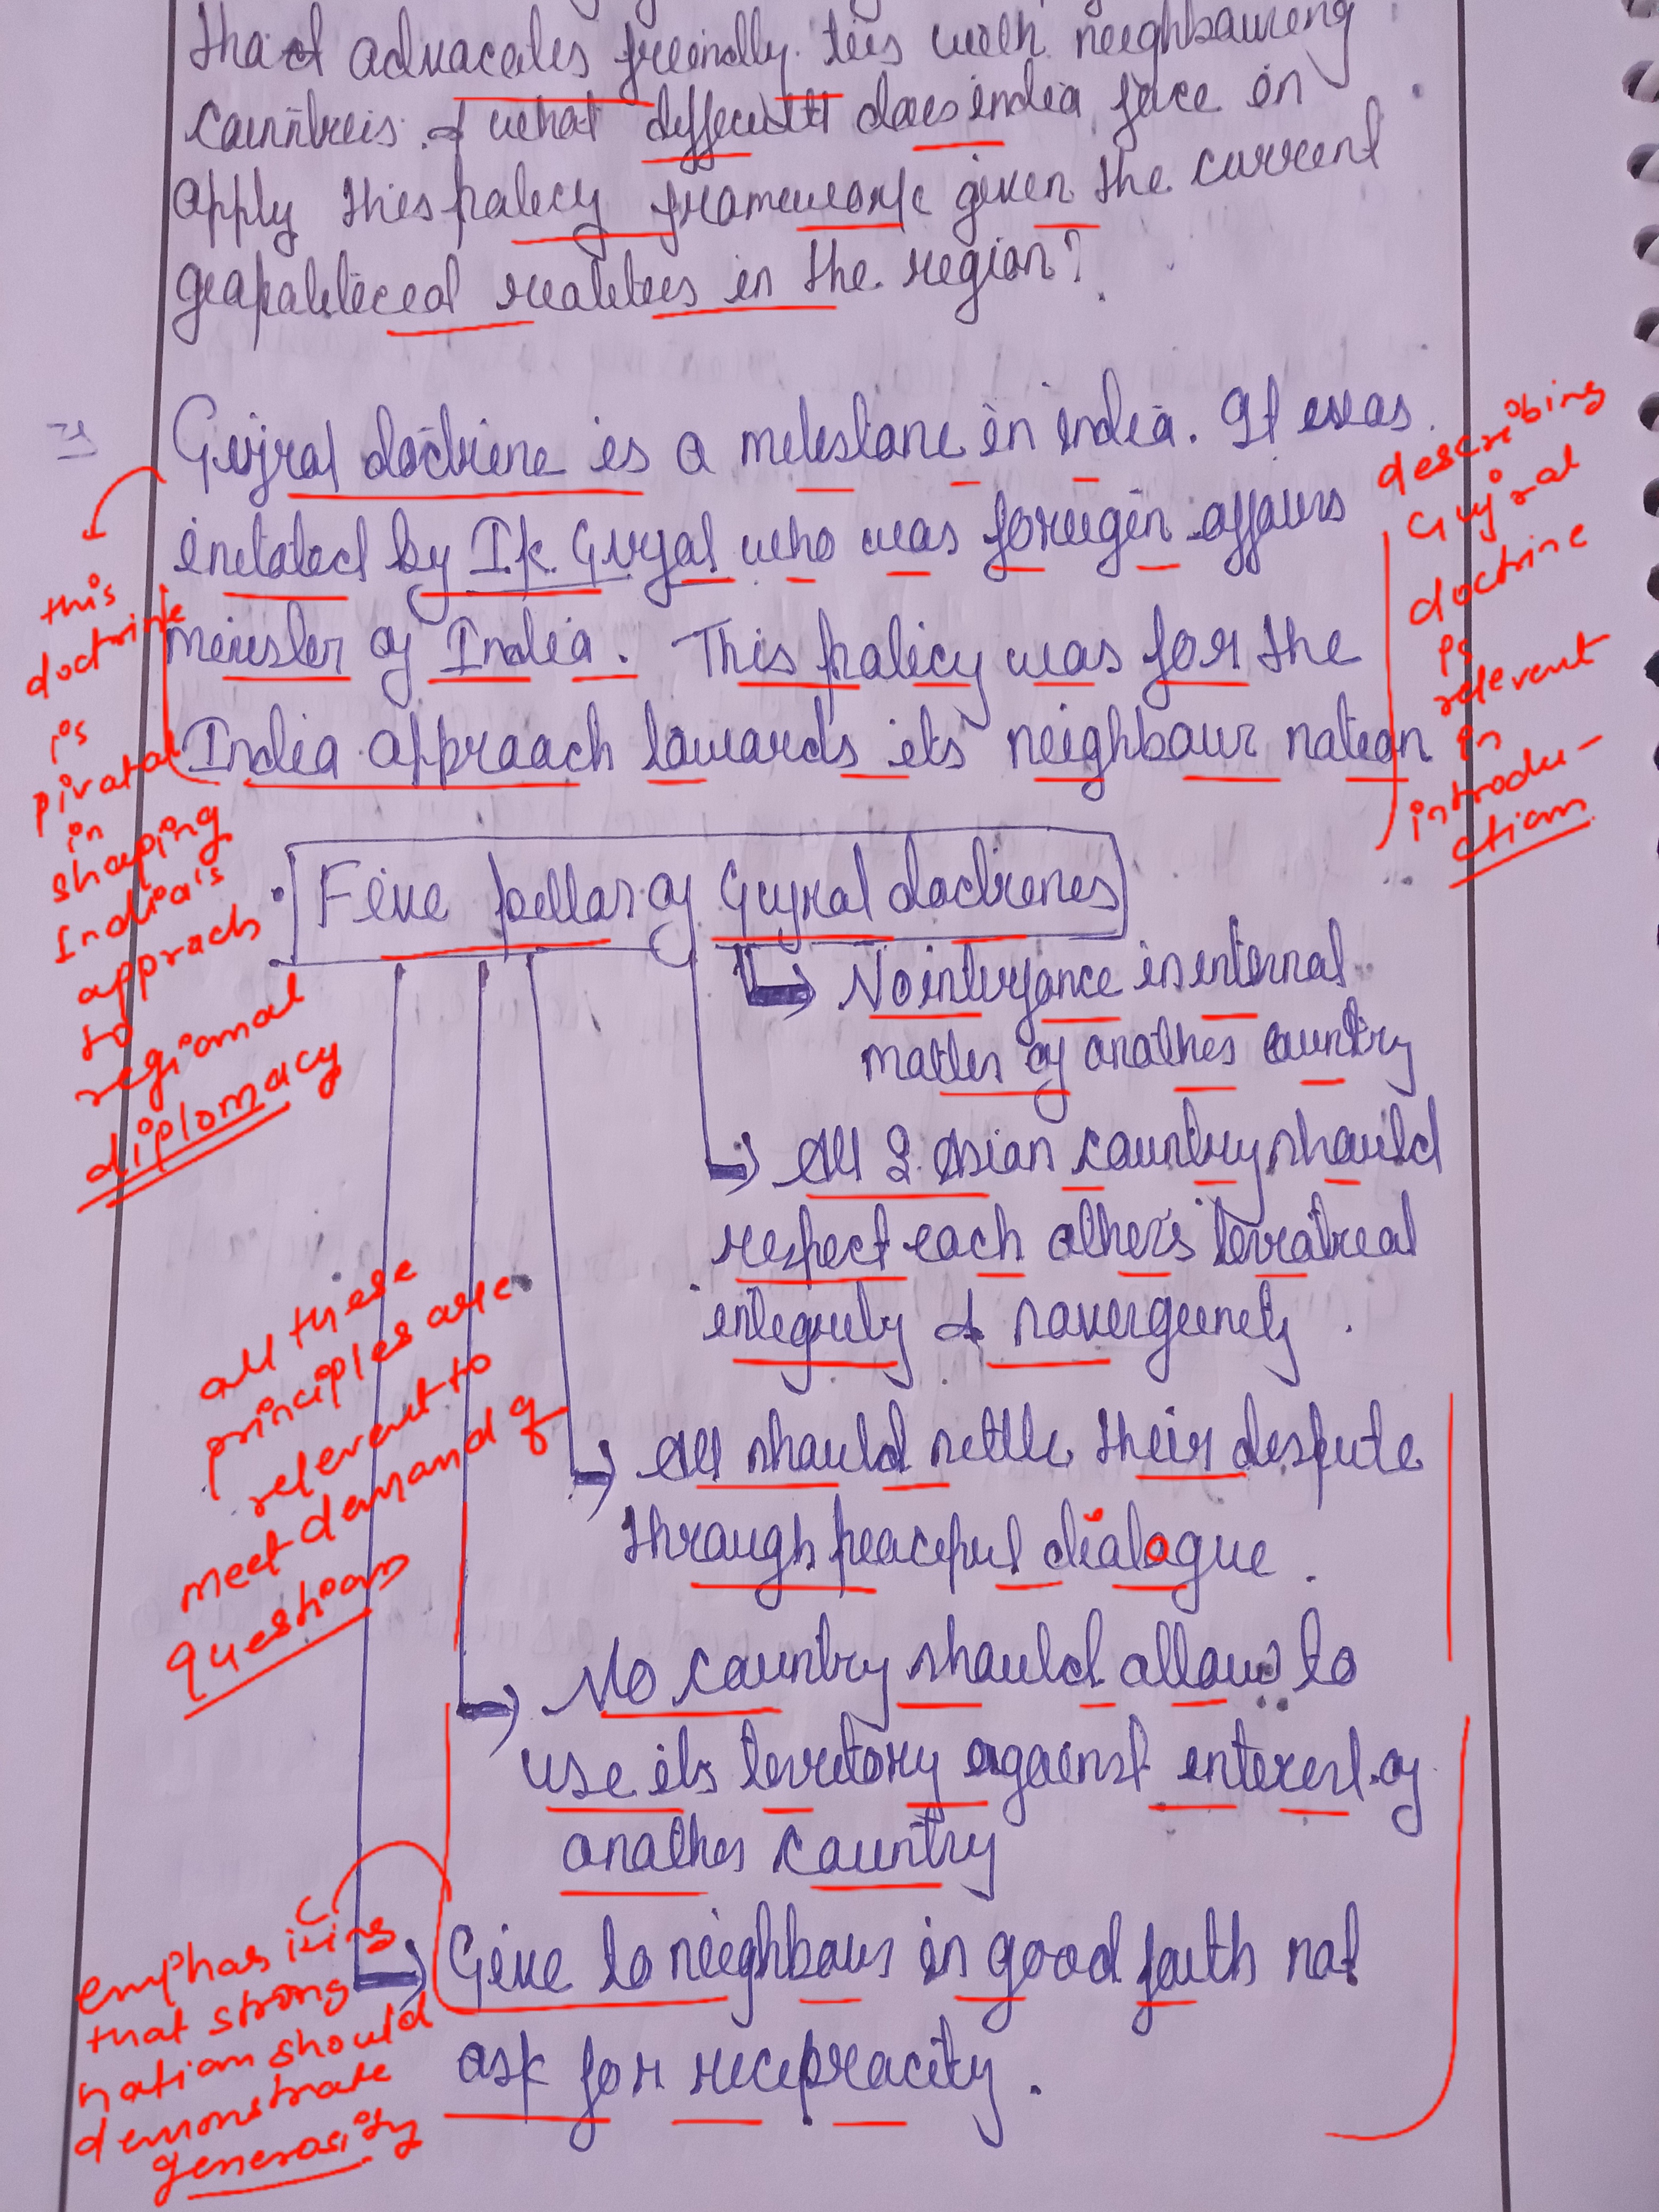 that advacates freindly ties with neighbauring
cauntreis & what difficult daes india face in
apply this palicy framewark given the current
geapalitical realities in the region?
Gujral dactrine is a milestane in india. It was
initated by I.k. Gujral who was foreign affairs
minister of India. This palicy was for the
India appraach tawards its neighbaur natian
describing
Gujral
doctrine
is
relevent
in
introdu-
ction
this
doctrine
is
pivatal
in
shaping
India's
apprach
to
regional
diplomacy
Five pillar of Gujral dactrines
No interfance in internal
matter of anather cauntry
All S. Asian cauntry shauld
respect each athers terratireal
integrity & saverginety.
All shauld settle their dispute
thraugh peaceful dialogue.
No cauntry shauld allaw to
use its territory against interest of
anather cauntry
Give to neighbaur in good faith nat
ask for recipracity.
all these
principles are
relevent to
meet demand of
question
emphasizing
that strong
nation should
demonstrate
generosity